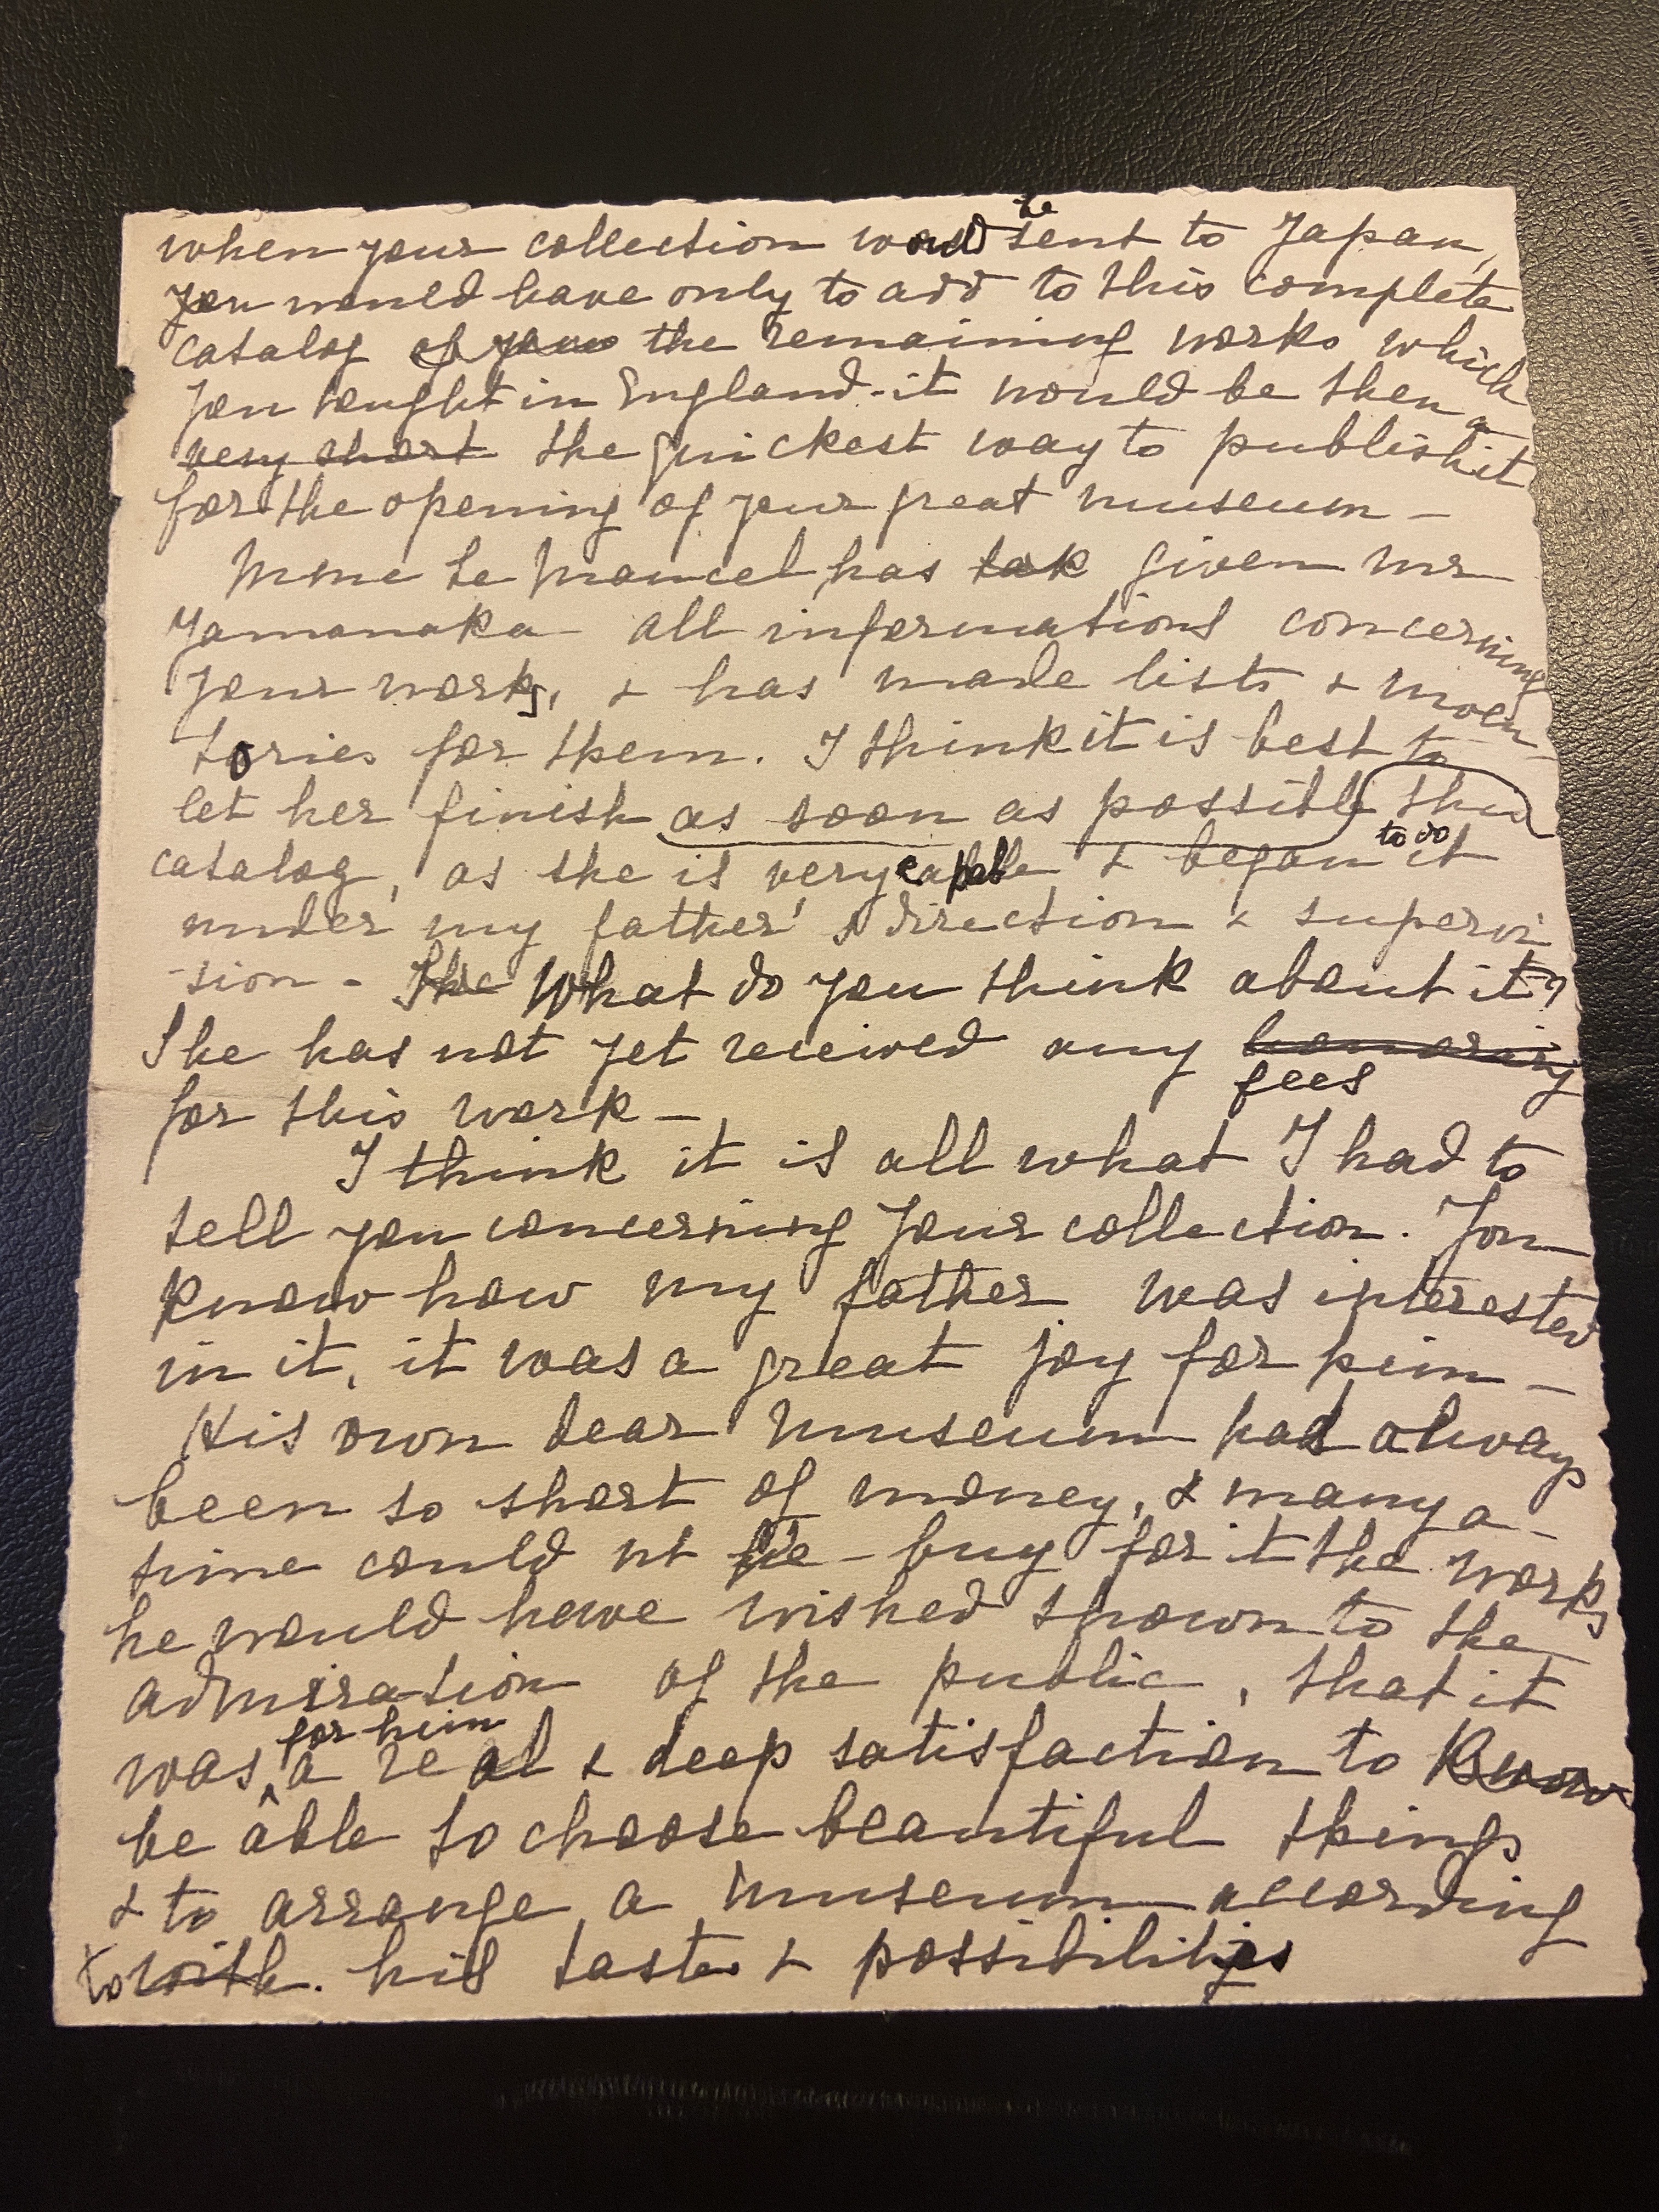 when your collection would be sent to Japan,
you would have only to add to this complete
catalog of your the remaining works which
you bought in England - it would be then a
very short the quickest way to publish it
for the opening of your great museum -
Mme Le Mancel has tak given Mr
Yamanaka all informations concerning
your works, & has made lists &
tories for them. I think it is best to
let her finish as soon as possible the
catalog, as she is very capable & began to do it
under my father's direction & supervi
-sion - She What do you think about it?
She has not yet received any
fees
for this work -
I think it is all what I had to
tell you concerning your collection. You
know how my father was interested
in it, it was a great joy for him -
His own dear Museum had always
been so short of money, & many a -
time could nt he - buy for it the works
he would have wished shown to the
admiration of the public, that it
was for him a real & deep satisfaction to know
be able to choose beautiful things
& to arrange a museum according
to with. his taste & possibilities